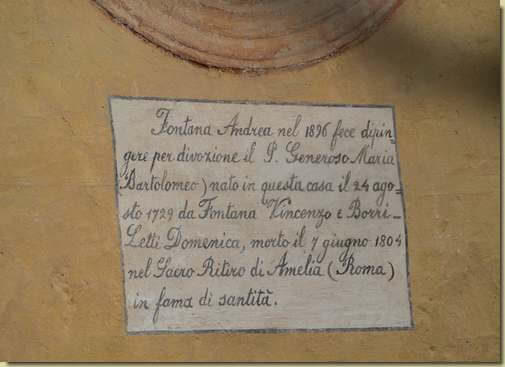 Fontana Andrea nel 1896 fece dipin-
gere per divozione il P. Generoso Maria
Bartolomeo) nato in questa casa il 24 ago-
sto 1729 da Fontana Vincenzo e Borri-
Letti Domenica, morto il 7 giugno 1804
nel Sacro Ritiro di Amelia (Roma)
in fama di santità.